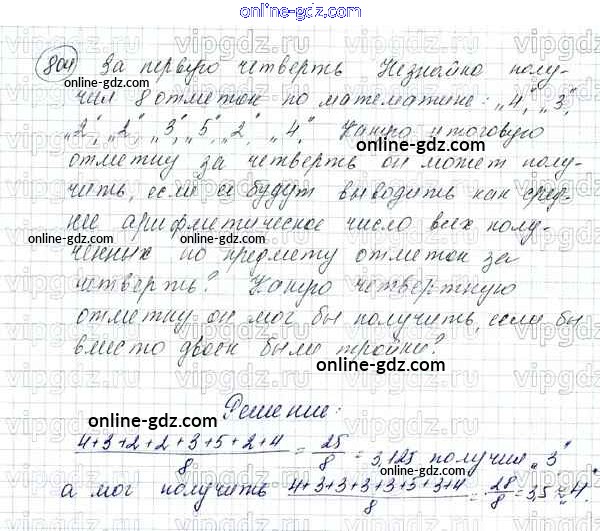 online-gdz.com
804 За первую четверть Незнайка полу-
чил 8 отметок по математике: „4", „3",
„2", „2", „3", „5", „2", „4". Какую итоговую
отметку за четверть он может полу-
чить, если её будут выводить как сред-
нее арифметическое число всех полу-
ченных по предмету отметок за
четверть? Какую четвертную
отметку он мог бы получить, если бы
вместо двоек были тройки?
Решение:
(4+3+2+2+3+5+2+4)/8 = 25/8 = 3,125 получил „3"
а мог получить (4+3+3+3+3+5+3+4)/8 = 28/8 = 3,5 ≈ „4"